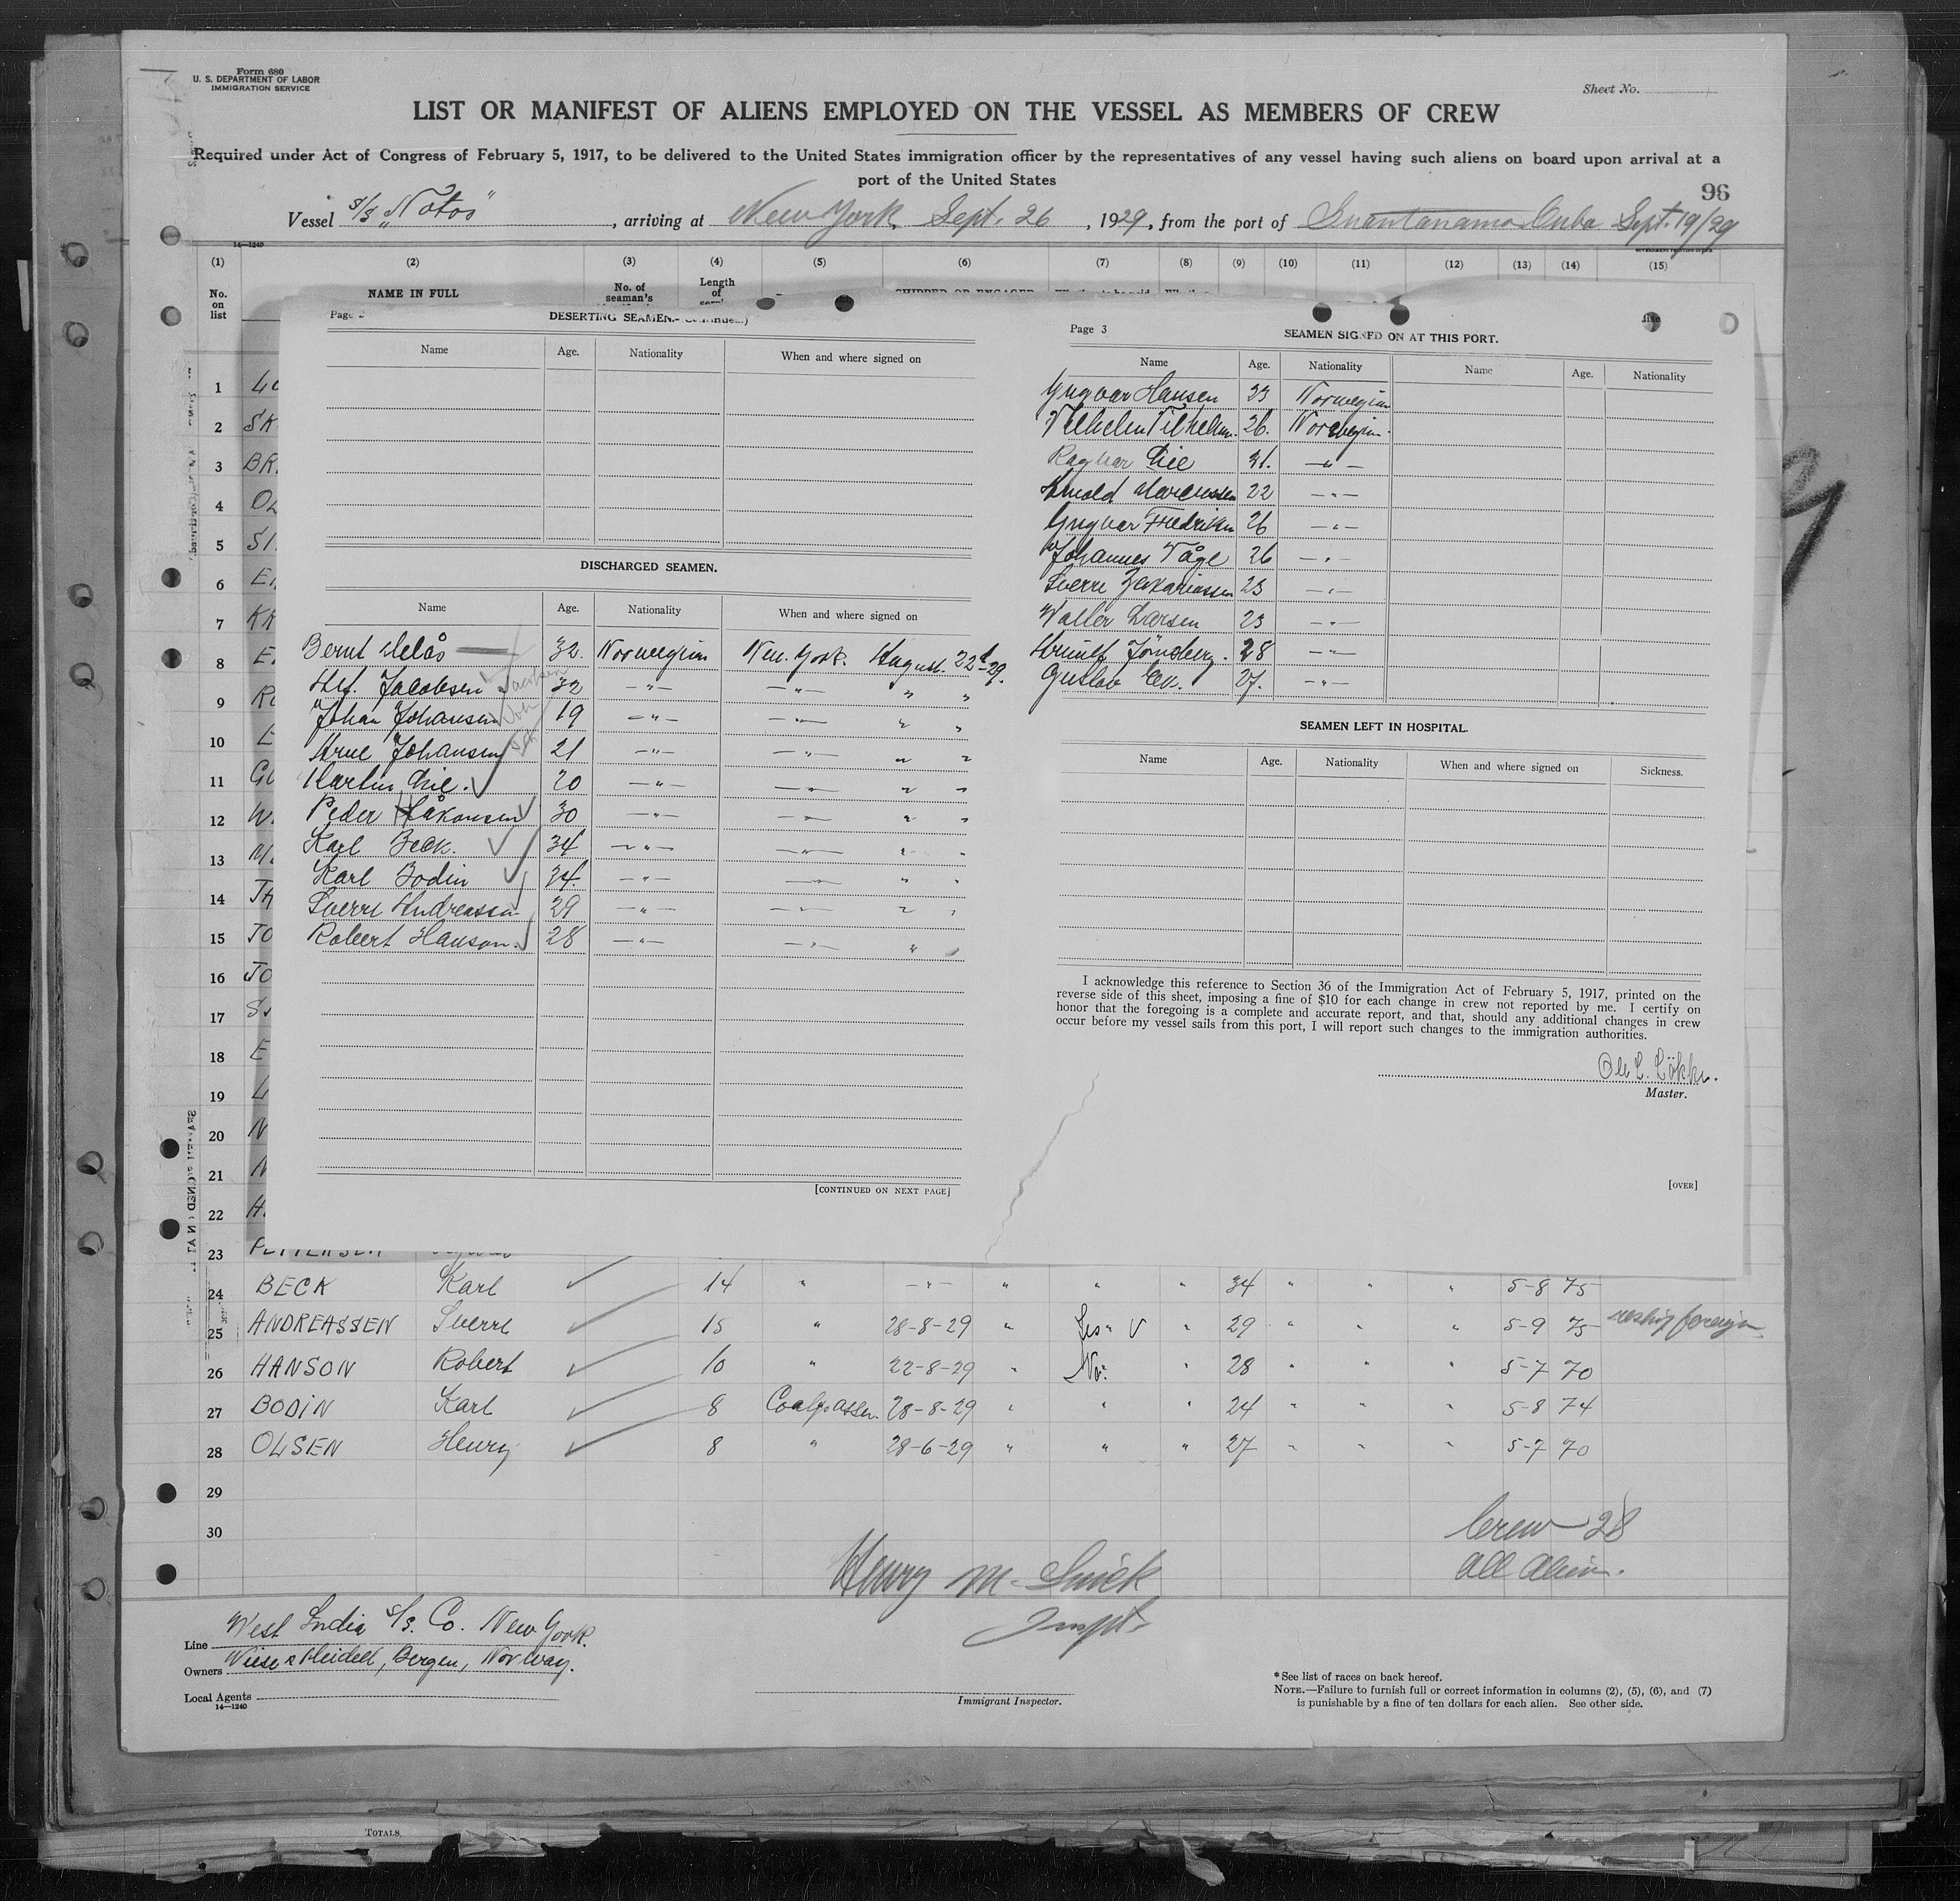 Form 680
U. S. DEPARTMENT OF LABOR
IMMIGRATION SERVICE
Sheet No.
LIST OR MANIFEST OF ALIENS EMPLOYED ON THE VESSEL AS MEMBERS OF CREW
Required under Act of Congress of February 5, 1917, to be delivered to the United States immigration officer by the representatives of any vessel having such aliens on board upon arrival at a
port of the United States
96
Vessel s/s "Notos" , arriving at New York, Sept. 26 , 1929, from the port of Guantanamo Cuba Sept. 19/29
14—1240
(1) (2) (3) (4) (5) (6) (7) (8) (9) (10) (11) (12) (13) (14) (15)
No. on list
NAME IN FULL
No. of seaman's
Length of
SHIPPED OR ENGAGED
Page
DESERTING SEAMEN.
Name Age. Nationality When and where signed on
DISCHARGED SEAMEN.
Name Age. Nationality When and where signed on
Bernt Melås 32. Norwegian New York. August. 22-29.
Jacobsen 32 -"- -"- " "
Johan Johansen 19 -"- -"- " "
Arne Johansen 21 -"- -"- " "
Martin 20 -"- -"- " "
Peder Håkonsen 30 -"- -"- " "
Karl Beck. 34 -"- -"- " "
Karl Bodin 34. -"- -"- " "
Sverre Andreassen 29 -"- -"- " "
Robert Hanson. 28 -"- -"- "
[CONTINUED ON NEXT PAGE]
Page 3
SEAMEN SIGNED ON AT THIS PORT.
Name Age. Nationality Name Age. Nationality
Yngvar Hansen 23 Norwegian
Vilhelm 26. Norwegian.
Ragnar 31. -"-
Arnold 22 -"-
Yngvar Fredriksen 26 -"-
Johannes Våge 26 -"-
Sverre Zakariassen 23 -"-
Walter Larsen 23 -"-
28 -"-
Gustav Ek. 27. -"-
SEAMEN LEFT IN HOSPITAL.
Name Age. Nationality When and where signed on Sickness.
I acknowledge this reference to Section 36 of the Immigration Act of February 5, 1917, printed on the
reverse side of this sheet, imposing a fine of $10 for each change in crew not reported by me. I certify on
honor that the foregoing is a complete and accurate report, and that, should any additional changes in crew
occur before my vessel sails from this port, I will report such changes to the immigration authorities.
Master.
[OVER]
1
2 SK
3 BR
4 OL
5
6
7
8
9
10
11
12
13
14
15 JO
16 JO
17
18 E
19 L
20 N
21
22
23 PETTERSEN
24 BECK Karl 14 " -"- " " " 34 " " " 5-8 75
25 ANDREASSEN Sverre 15 " 28-8-29 " " 29 " " " 5-9 75 reship foreign
26 HANSON Robert 10 " 22-8-29 " No. " 28 " " " 5-7 70
27 BODIN Karl 8 Coalpasser. 28-8-29 " " " 24 " " " 5-8 74
28 OLSEN Henry 8 " 28-6-29 " " " 27 " " " 5-7 70
29
30
Crew 28
all alien.
Henry M.
Inspt.
Line West India S/S. Co. New York.
Owners Bergen, Norway.
Local Agents
14—1240
Immigrant Inspector.
*See list of races on back hereof.
NOTE.—Failure to furnish full or correct information in columns (2), (5), (6), and (7)
is punishable by a fine of ten dollars for each alien. See other side.
TOTALS